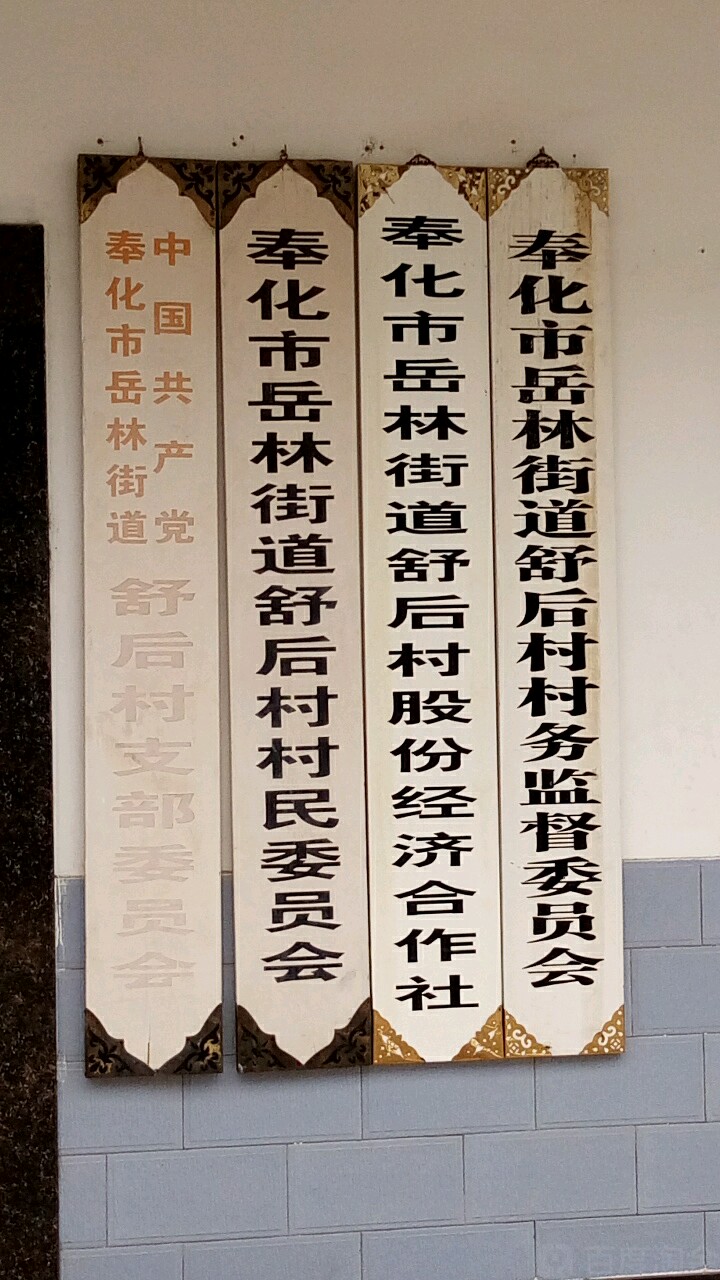 中国共产党
奉化市岳林街道
舒后村支部委员会
奉化市岳林街道舒后村村民委员会
奉化市岳林街道舒后村股份经济合作社
奉化市岳林街道舒后村村务监督委员会